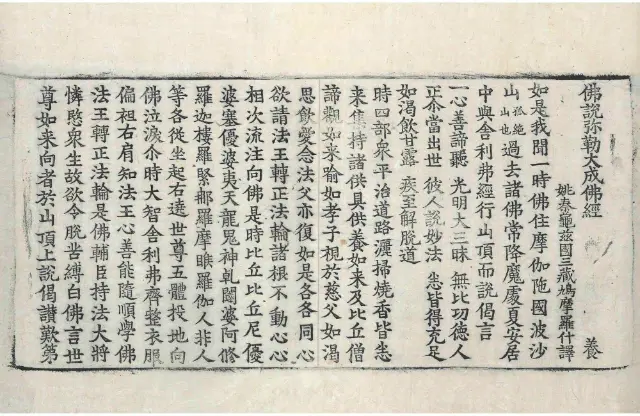 佛說弥勒大成佛經 養
姚秦龜茲國三藏鳩摩羅什譯
如是我聞一時佛住摩伽陁國波沙
山孤絶山也過去諸佛常降魔處夏安居
中與舍利弗經行山頂而說偈言
一心善諦聽 光明大三昧 無比功德人
正尒當出世 彼人說妙法 悉皆得充足
如渴飲甘露 疾至解脫道
時四部衆平治道路灑掃燒香皆悉
来集持諸供具供養如来及比丘僧
諦觀如来喻如孝子視於慈父如渴
思飲愛念法父亦復如是各各同心
欲請法王轉正法輪諸根不動心心
相次流注向佛是時比丘比丘尼優
婆塞優婆夷天龍鬼神乹闥婆阿脩
羅迦樓羅緊那羅摩睺羅伽人非人
等各從坐起右遶世尊五體投地向
佛泣淚尒時大智舍利弗齊整衣服
偏袒右肩知法王心善能隨順學佛
法王轉正法輪是佛輔臣持法大將
憐愍衆生故欲令脫苦縛白佛言世
尊如来向者於山頂上說偈讃歎第